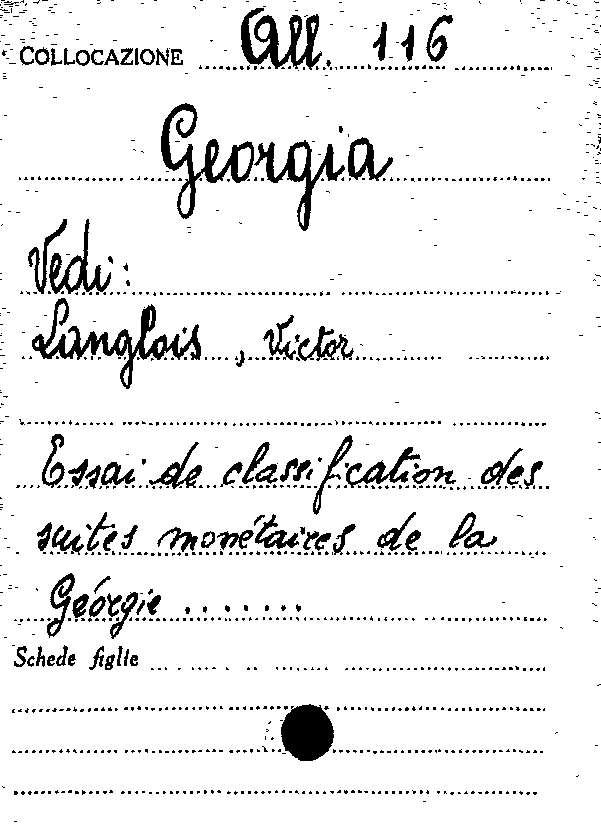 COLLOCAZIONE All. 116
Georgia
Vedi:
Langlois, Victor
Essai de classification des
suites monétaires de la
Geórgie .......
Schede figlie